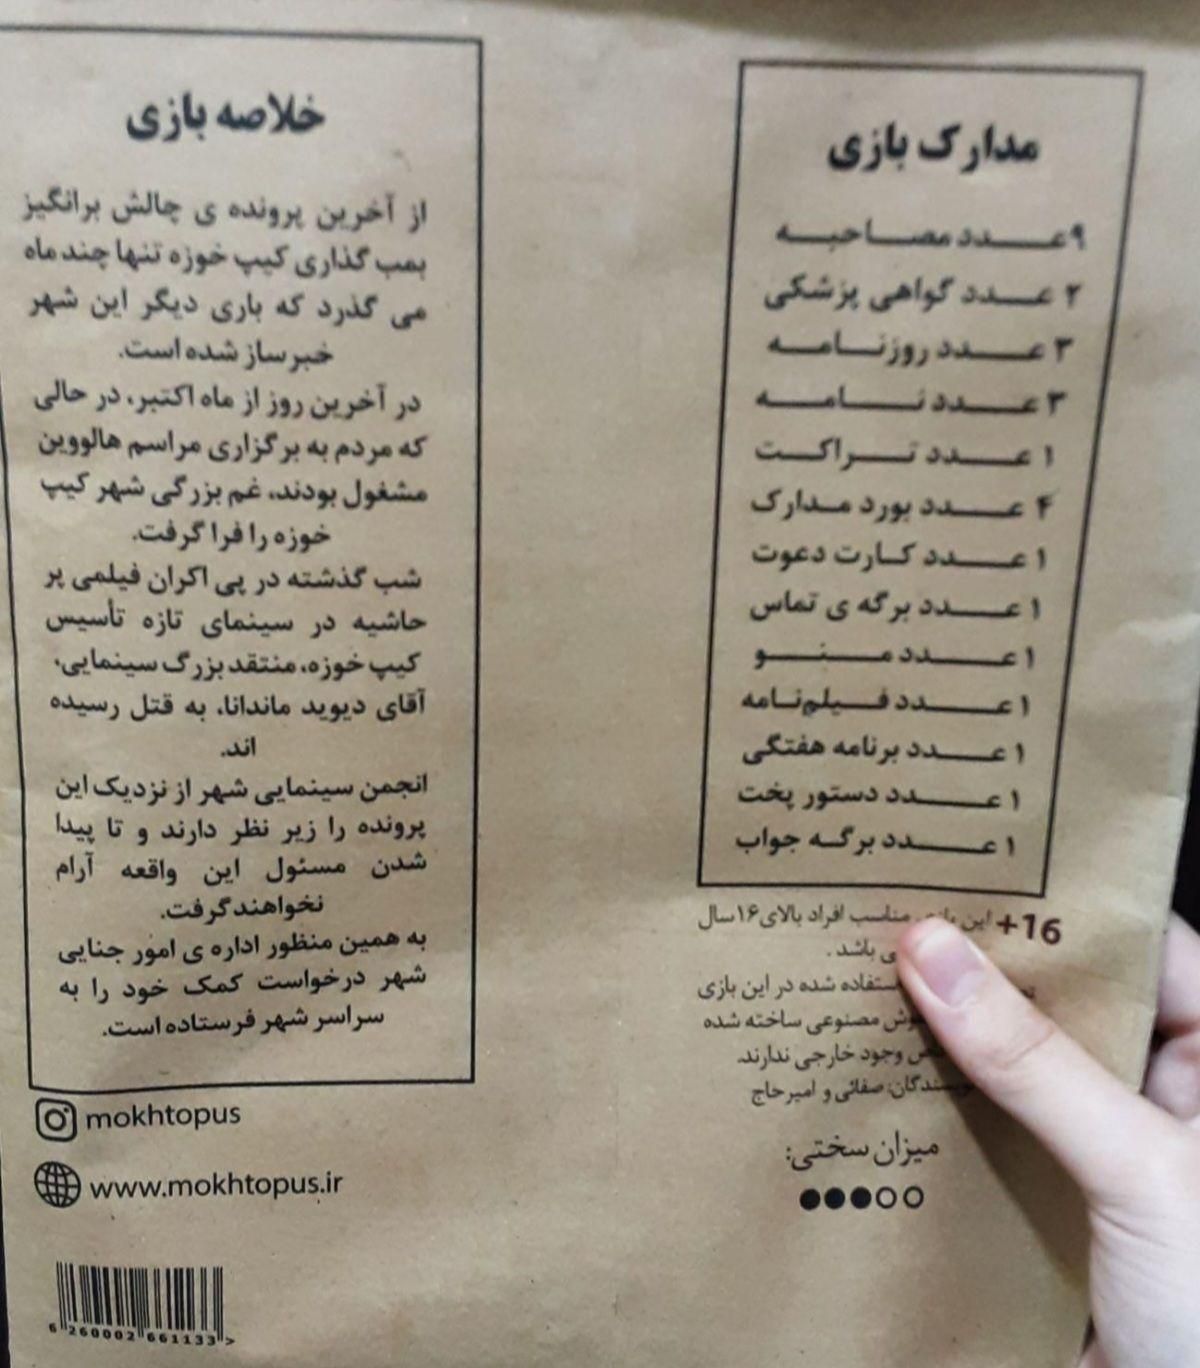 مدارک بازی
۹ عدد مصاحبه
۲ عدد گواهی پزشکی
۳ عدد روزنامه
۳ عدد نامه
۱ عدد تراکت
۴ عدد بورد مدارک
۱ عدد کارت دعوت
۱ عدد برگه ی تماس
۱ عدد منو
۱ عدد فیلم‌نامه
۱ عدد برنامه هفتگی
۱ عدد دستور پخت
۱ عدد برگه جواب
+16 این بازی مناسب افراد بالای ۱۶ سال
باشد .
استفاده شده در این بازی
مصنوعی ساخته شده
وجود خارجی ندارند.
صفائی و امیرحاج
میزان سختی:
خلاصه بازی
از آخرین پرونده ی چالش برانگیز
بمب گذاری کیپ خوزه تنها چند ماه
می گذرد که باری دیگر این شهر
خبرساز شده است.
در آخرین روز از ماه اکتبر، در حالی
که مردم به برگزاری مراسم هالووین
مشغول بودند، غم بزرگی شهر کیپ
خوزه را فرا گرفت.
شب گذشته در پی اکران فیلمی پر
حاشیه در سینمای تازه تأسیس
کیپ خوزه، منتقد بزرگ سینمایی،
آقای دیوید ماندانا، به قتل رسیده
اند.
انجمن سینمایی شهر از نزدیک این
پرونده را زیر نظر دارند و تا پیدا
شدن مسئول این واقعه آرام
نخواهند گرفت.
به همین منظور اداره ی امور جنایی
شهر درخواست کمک خود را به
سراسر شهر فرستاده است.
mokhtopus
www.mokhtopus.ir
6 260002 661133 >